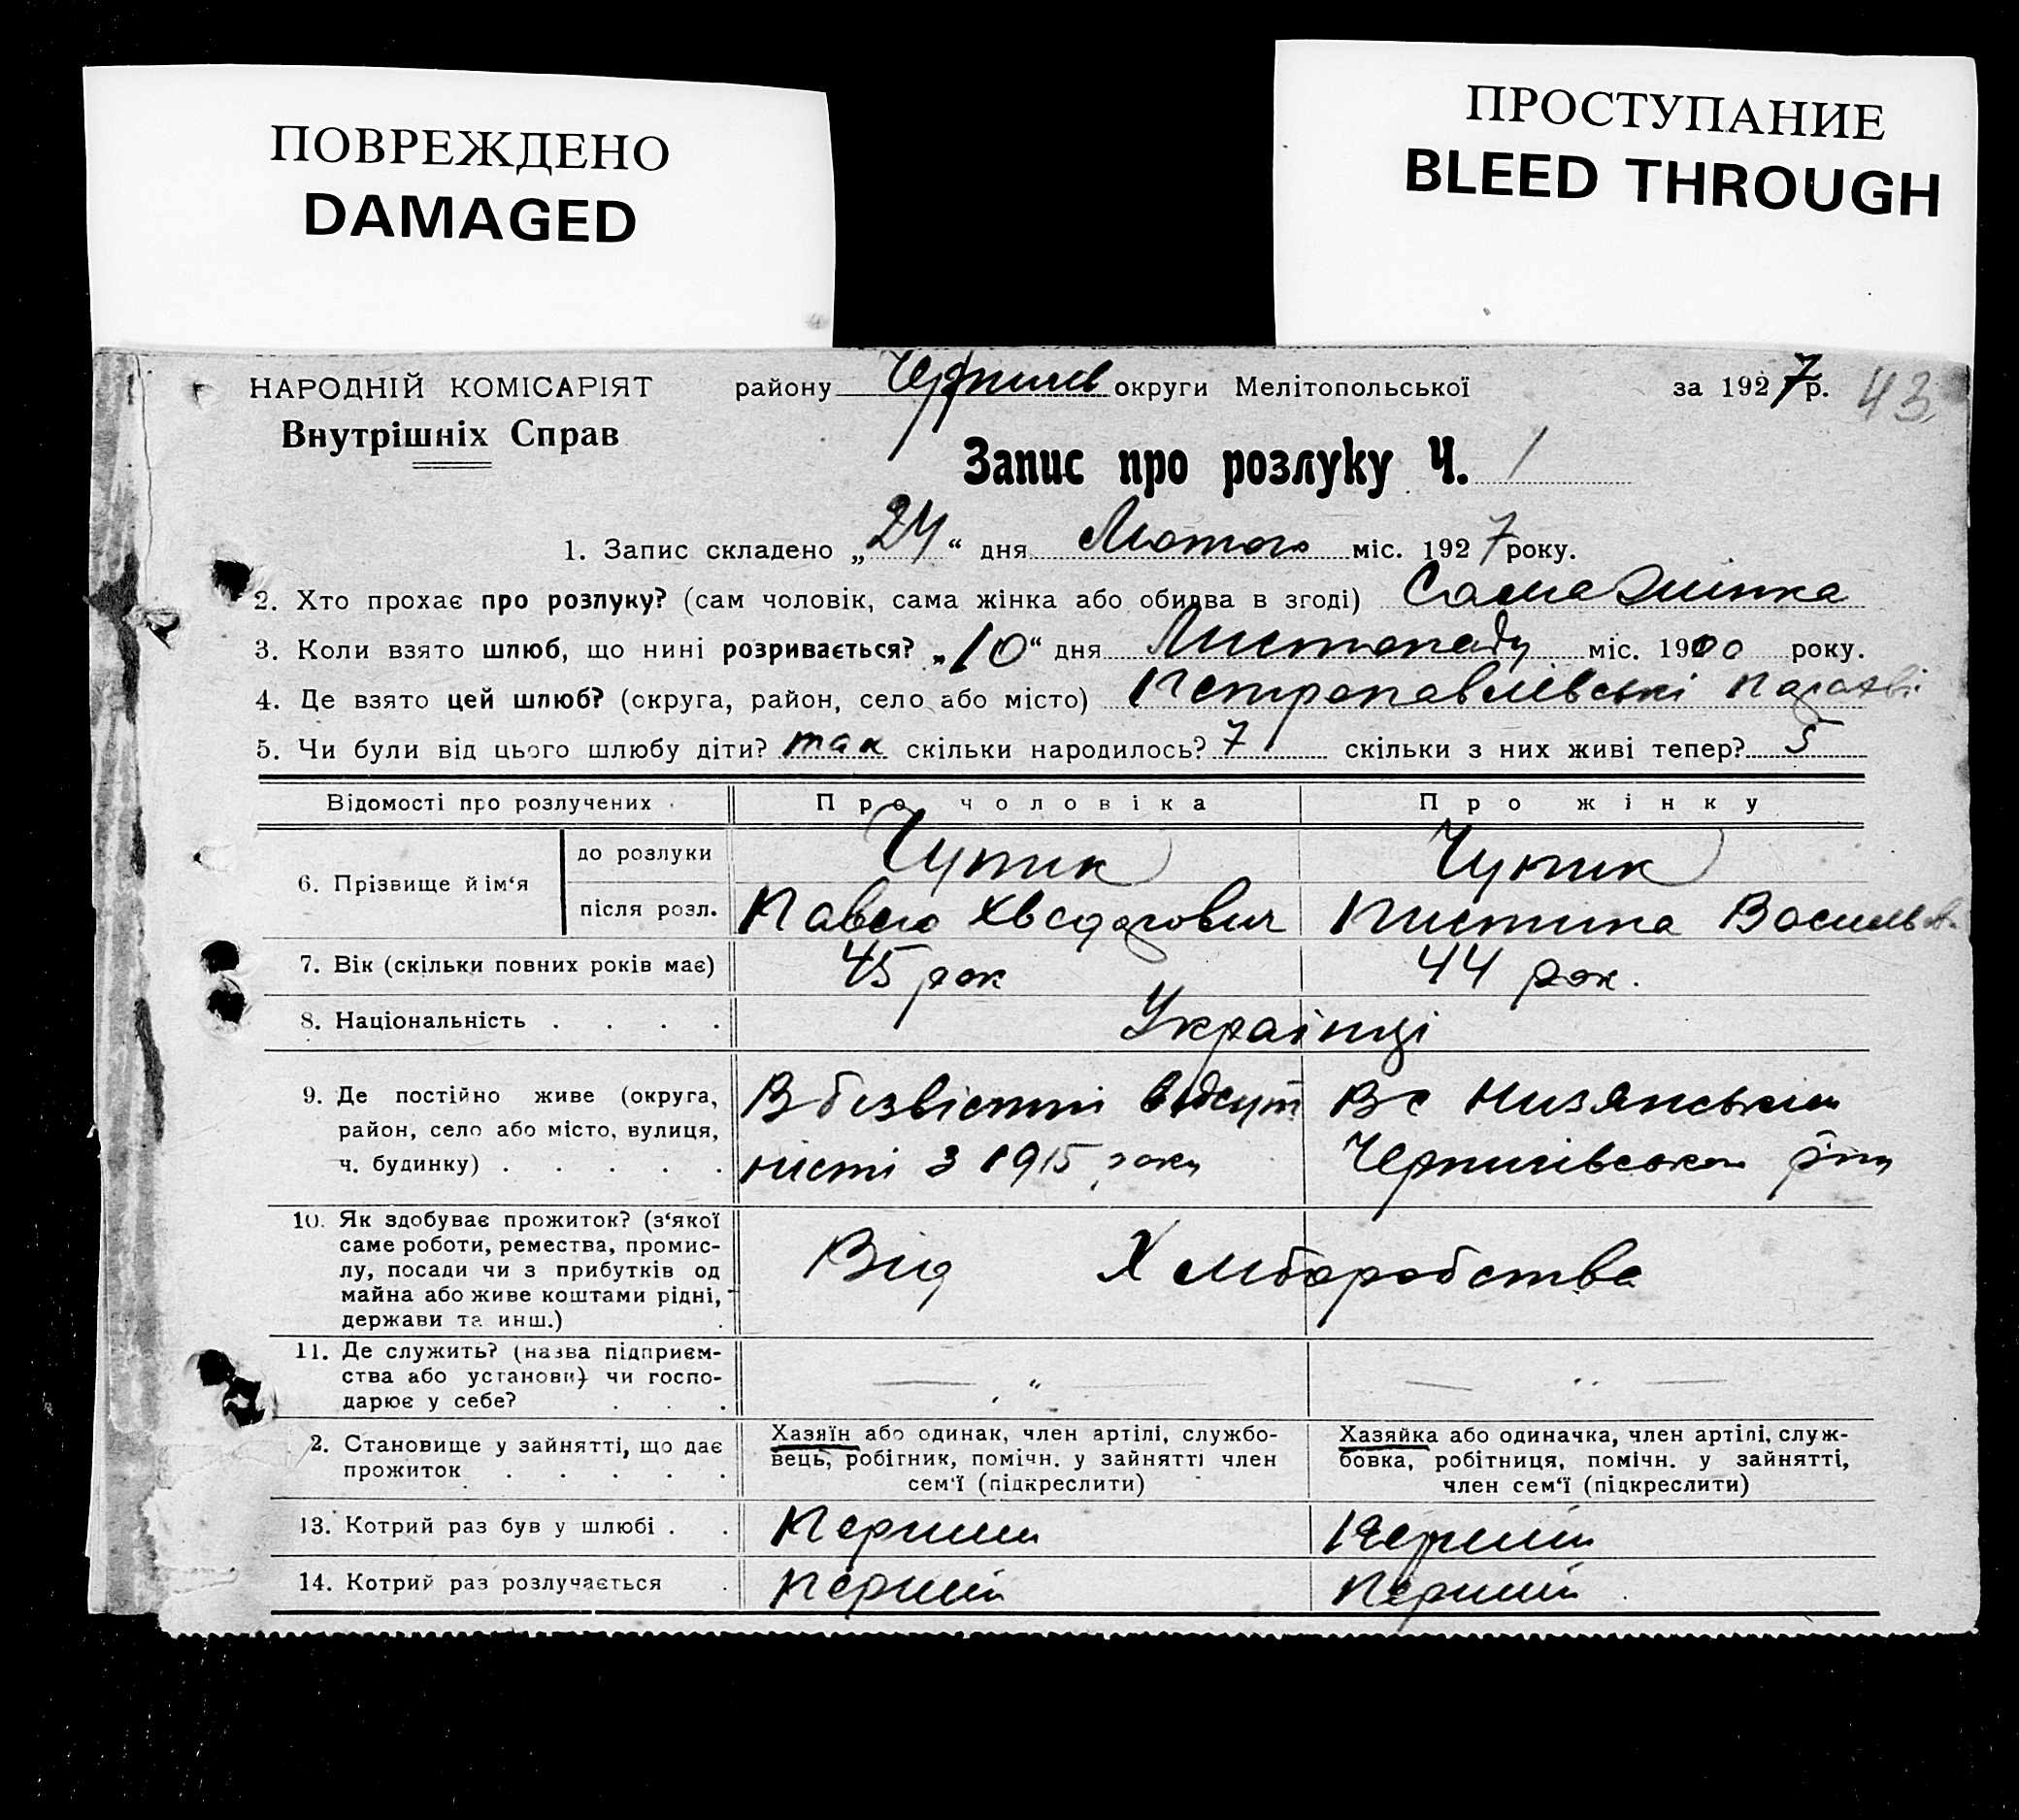 ПОВРЕЖДЕНО
DAMAGED
ПРОСТУПАНИЕ
BLEED THROUGH
НАРОДНІЙ КОМІСАРІЯТ району округи Мелітопольської за 1927р. 43
Внутрішніх Справ
Запис про розлуку Ч. 1
1. Запис складено „24“ дня Лютого міс. 1927 року.
2. Хто прохає про розлуку? (сам чоловік, сама жінка або обидва в згоді) Сама жінка
3. Коли взято шлюб, що нині розривається? „10“ дня Листопаду міс. 1900 року.
4. Де взято цей шлюб? (округа, район, село або місто) Петропавлівські
5. Чи були від цього шлюбу діти? так скільки народилось? 7 скільки з них живі тепер? 5
Відомості про розлучених Про чоловіка Про жінку
6. Прізвище й ім‘я до розлуки Чупик Чупик
після розл. Павло Хведорович Пистина
7. Вік (скільки повних років має) 45 рок 44 рок.
8. Національність . . . . Українці
9. Де постійно живе (округа, район, село або місто, вулиця, ч. будинку) . . . . .
В безвістній відсут
ности з 1915 року
Вс Низянським
Чернигівськом р-ну
10. Як здобуває прожиток? (з‘якої
саме роботи, ремества, промис-
лу, посади чи з прибутків од
майна або живе коштами рідні,
держави та инш.)
Від Хліборобства
11. Де служить? (назва підприєм-
ства або установи) чи госпо-
дарює у себе? . . .
— „ — — „ —
2. Становище у зайнятті, що дає
прожиток . . . . .
Хазяїн або одинак, член артілі, службо-
вець, робітник, помічн. у зайнятті член
сем‘ї (підкреслити)
Хазяйка або одиначка, член артілі, служ-
бовка, робітниця, помічн. у зайнятті,
член сем‘ї (підкреслити)
13. Котрий раз був у шлюбі . . Перший Перший
14. Котрий раз розлучається . Перший Перший